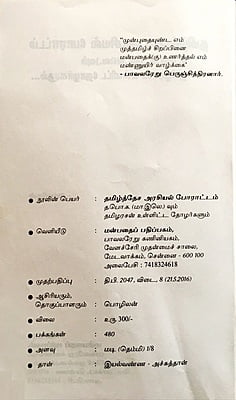 "முன்புதையுண்ட எம்
முத்தமிழ்ச் சிறப்பினை
மன்பதைக்(கு) உணர்த்தல் எம்
மண்ணுயிர் வாழ்க்கை"
- பாவலரேறு பெருஞ்சித்திரனார்.
நூலின் பெயர் : தமிழ்த்தேச அரசியல் போராட்டம்
தபொ.க. (மா.இலெ) வும்
தமிழரசன் உள்ளிட்ட தோழர்களும்
வெளியீடு : மன்பதைப் பதிப்பகம்,
பாவலரேறு கணினியகம்,
வேளச்சேரி முதன்மைச் சாலை,
மேடவாக்கம், சென்னை - 600 100
அலைபேசி : 7418324618
முதற்பதிப்பு : தி.பி. 2047, விடை, 8 (21.5.2016)
ஆசிரியரும்,
தொகுப்பாளரும் : பொழிலன்
விலை : உரு. 300/-
பக்கங்கள் : 480
அளவு : மடி (தெம்மி) 1/8
தாள் : இயல்வண்ண - அச்சுத்தாள்